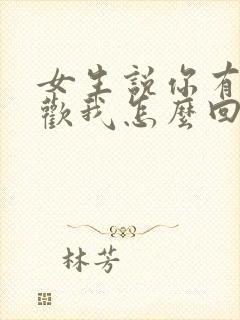 女生說你有
歡我怎麼回
林芳